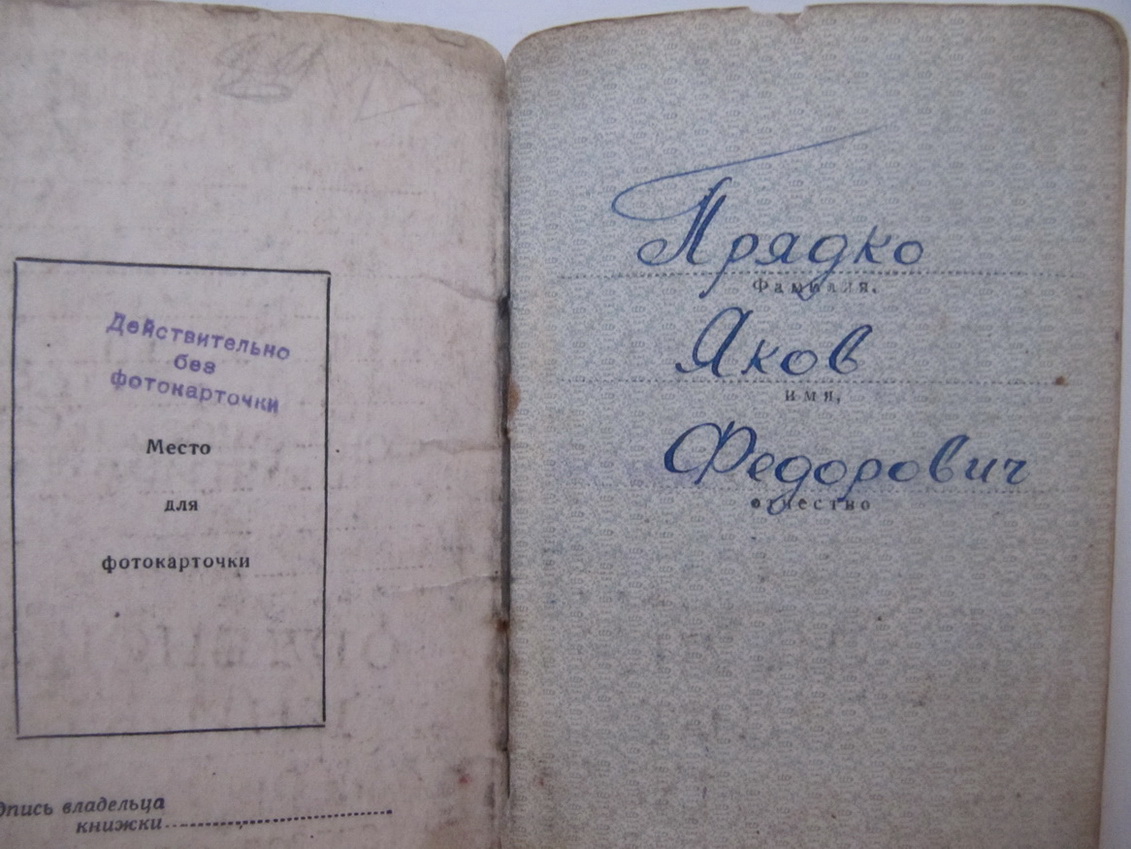 Действительно
без
фотокарточки
Место
для
фотокарточки
владельца
книжки
Прядко
Фамилия,
Яков
имя,
Федорович
отчество